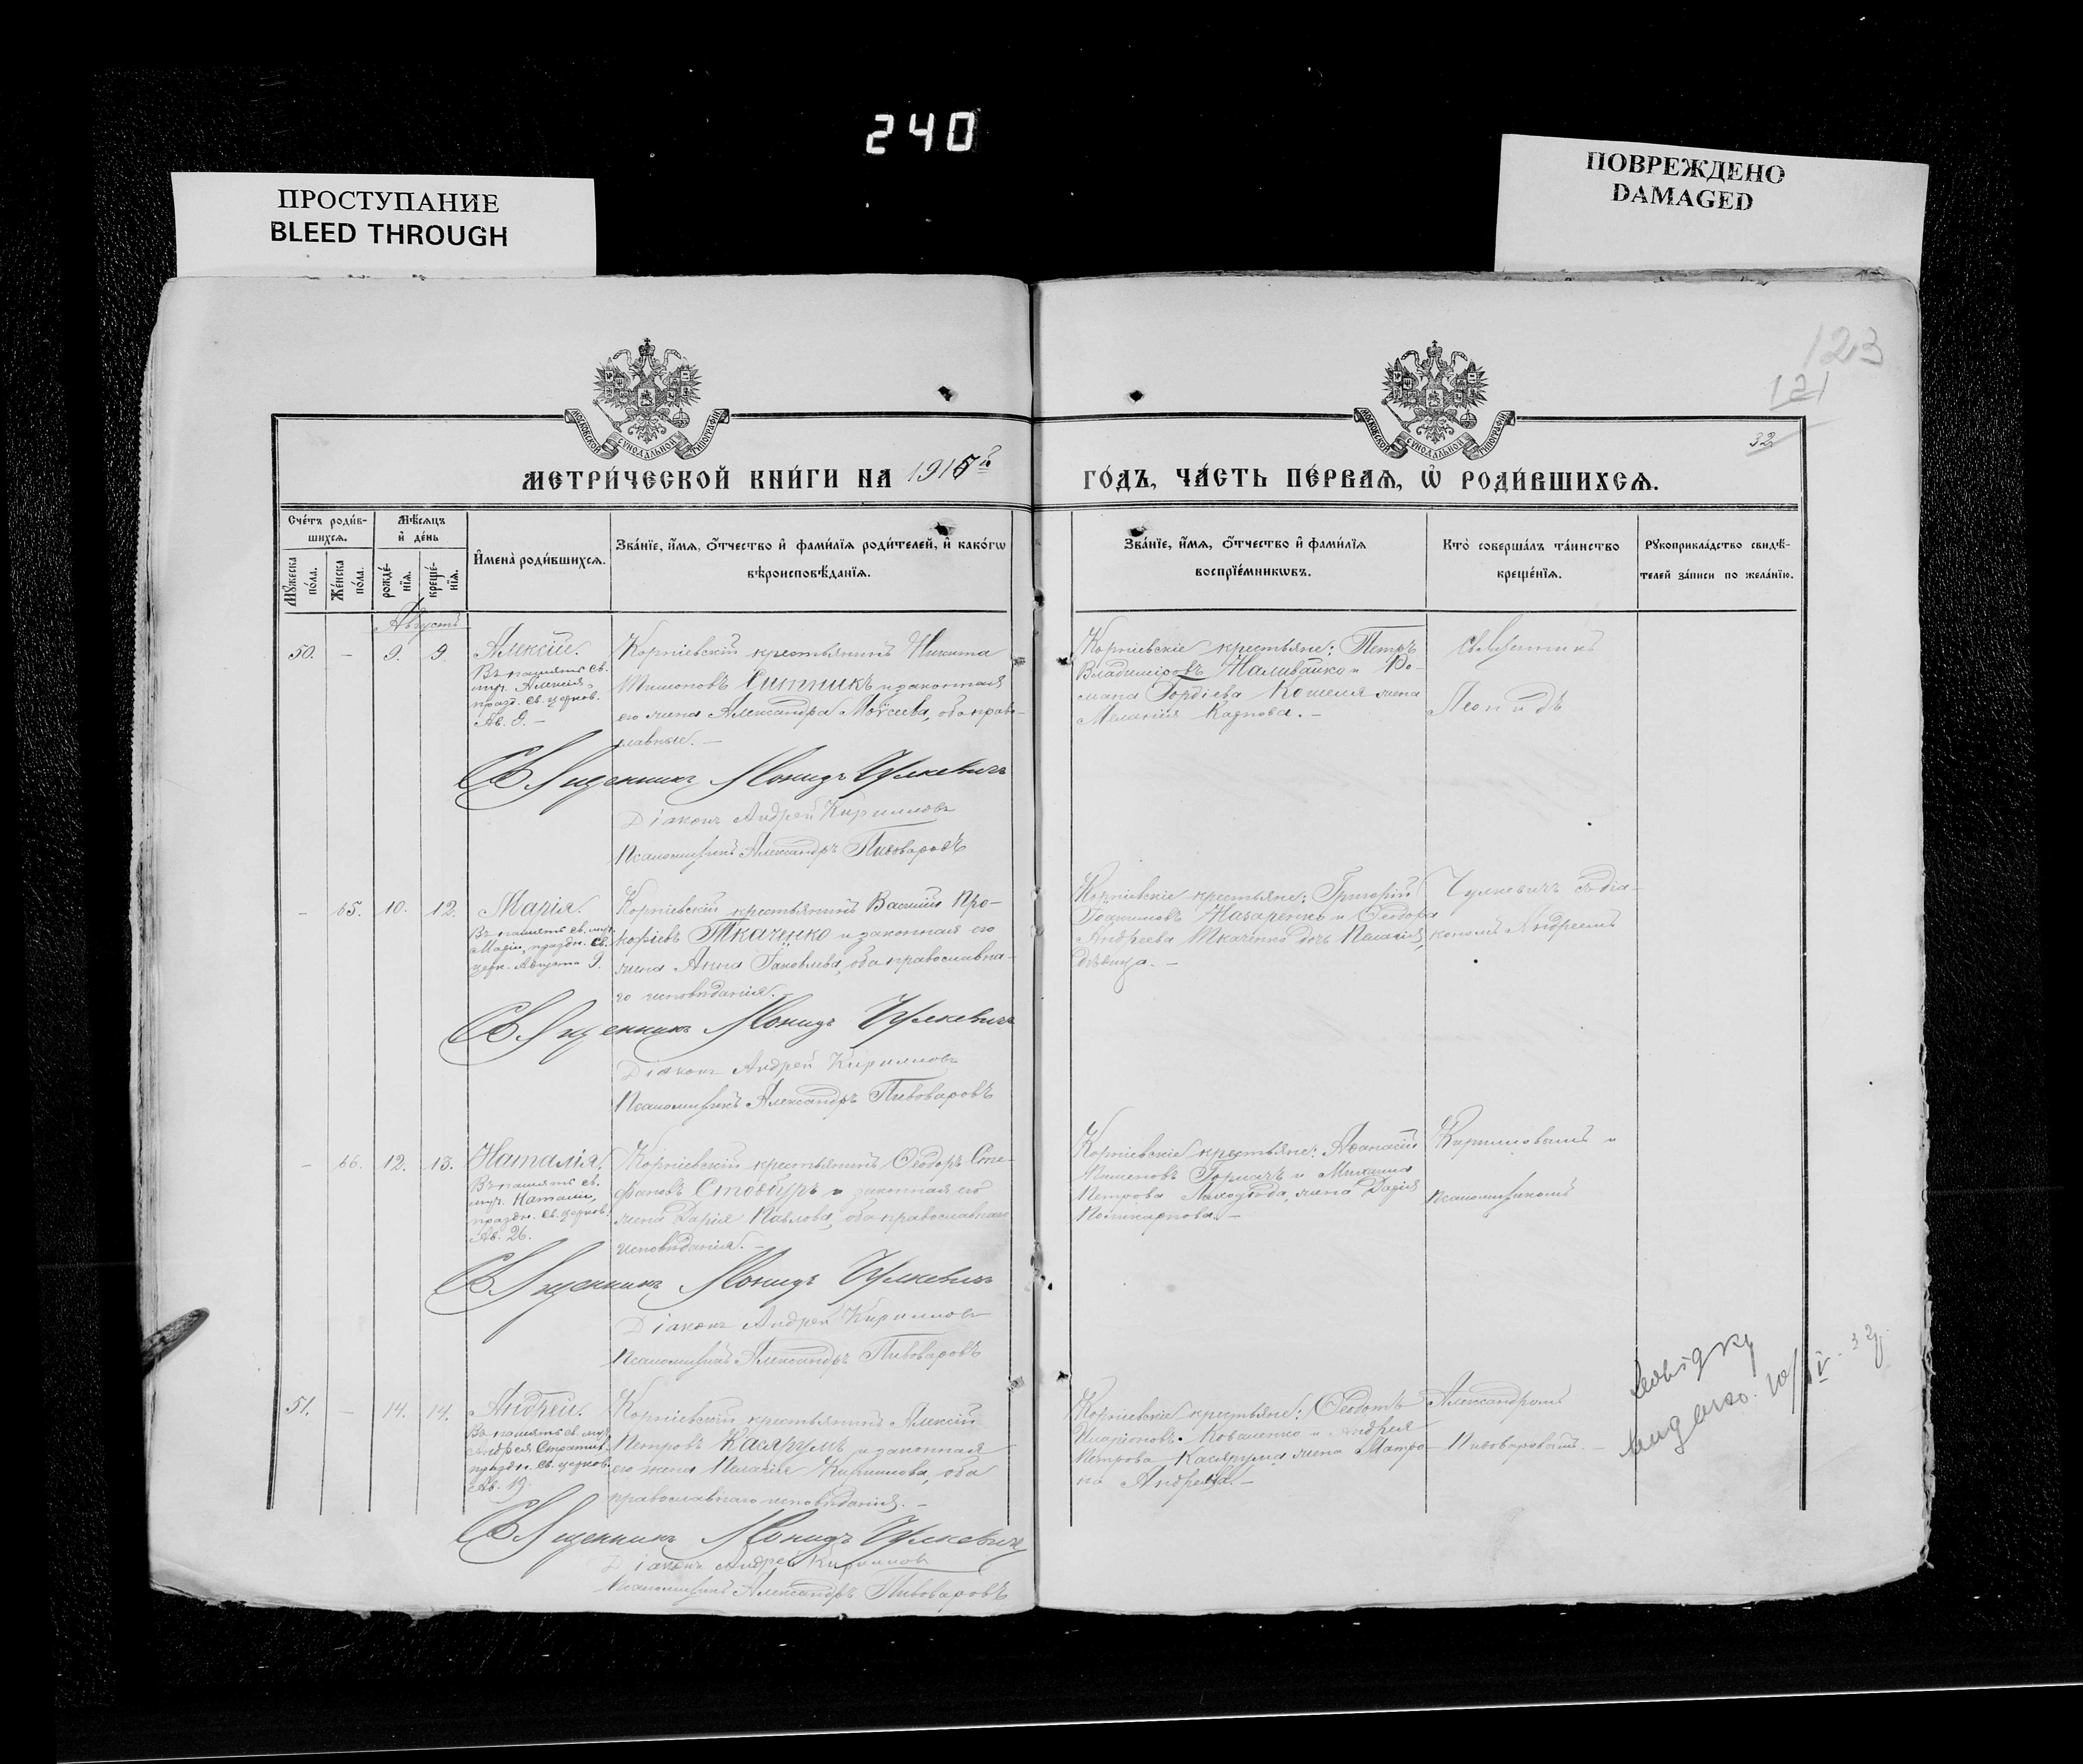 240
ПРОСТУПАНИЕ
BLEED THROUGH
ПОВРЕЖДЕНО
DAMAGED
123
121
32
МОСКОВСКОЙ СѴНОДАЛЬНОЙ ТИПОГРАФІИ
МОСКОВСКОЙ СѴНОДАЛЬНОЙ ТИПОГРАФІИ
МЕТРИ́ЧЕСКОЙ КНИ́ГИ НА 1915й
ГО́ДЪ, ЧА́СТЬ ПЕ́РВАѦ, Ѡ҆ РОДИ́ВШИХСѦ.
Сче́тъ роди́в-
шихсѧ.
Мꙋ́жеска
по́ла.
Же́нска
по́ла.
Мѣ́сѧцъ
и҆ де́нь
рожде́-
нїѧ.
креще́-
нїѧ.
И҆мена̀ роди́вшихсѧ.
Зва́нїе, и҆́мѧ, ѻ҆́тчество и҆ фами́лїѧ роди́телей, и҆ како́гѡ
вѣроисповѣ́данїѧ.
Зва́нїе, и҆́мѧ, ѻ҆́тчество и҆ фами́лїѧ
воспрїе́мникѡвъ.
Кто̀ соверша́лъ та́инство
креще́нїѧ.
Рꙋкоприкла́дство свидѣ́-
телей за́писи по жела́нїю.
Августъ
50. – 9. 9.
Алексій.
Въ память св.
муч. Алексія,
празд. св. церков.
Ав. 9. –
Корніевскій крестьянинъ Никита
Тимоновъ Ситникъ и законная
его жена Александра Моѵсеева, оба право-
славные. –
Священникъ Леонидъ Чулкевичъ
Діаконъ Андрей Кирилловъ
Псаломщикъ Александръ Пивоваровъ
Корніевскіе крестьяне: Петръ
Владиміровъ Наливайко и Ро-
мана Гордіева Кошеля жена
Меланія Карпова. –
Священникъ
Леонидъ
– 65. 10. 12.
Марія.
Въ память св. муч.
Маріи, праздн. св.
церк. Августа 9.
Корніевскій крестьянинъ Василій Про-
коріевъ Ткаченко и законная его
жена Анна Іаковлева, оба православна-
го исповѣданія. –
Священникъ Леонидъ Чулкевичъ
Діаконъ Андрей Кирилловъ
Псаломщикъ Александръ Пивоваровъ
Корніевскіе крестьяне: Григорій
Іоакимовъ Назаренко и Ѳеодора
Андреева Ткаченко дочь Пелагія,
дѣвица. –
Чулкевичъ съ діа-
кономъ Андреемъ
– 66. 12. 13.
Наталія.
Въ память св.
муч. Наталіи,
праздн. св. церков.
Ав. 26.
Корніевскій крестьянинъ Ѳеодоръ Сте-
фановъ Стовбуръ и законная его
жена Дарія Павлова, оба православнаго
исповѣданія. –
Священникъ Леонидъ Чулкевичъ
Діаконъ Андрей Кирилловъ
Псаломщикъ Александръ Пивоваровъ
Корніевскіе крестьяне: Аѳанасій
Горкачъ и Михаила
Петрова жена Дарія
Поликарпова. –
Кирилловымъ и
псаломщикомъ
51. – 14. 14.
Андрей.
Въ память св. муч.
Андрея Стратил.
праздн. св. церков.
Ав. 19.
Корніевскій крестьянинъ Алексій
Петровъ Касярумъ и законная
его жена Пелагія Кириллова, оба
православнаго исповѣданія. –
Священникъ Леонидъ Чулкевичъ
Діаконъ Андрей Кирилловъ
Псаломщикъ Александръ Пивоваровъ
Корніевскіе крестьяне: Ѳеодотъ
Иларіоновъ Коваленко и Андрея
Петрова Касярума жена Матро-
на Андреева. –
Александромъ
Пивоваровымъ. –
довідку
видано. 10/IV. 32